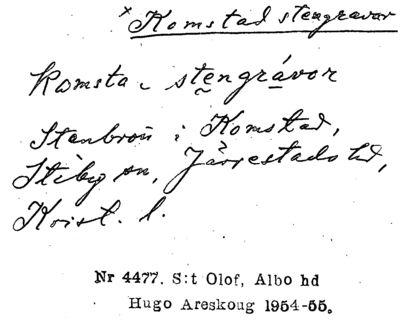 × Komstad stengravar
komsta - stengrávor
Stenbrott i Komstad,
Stiby sn, Järrestads hd,
Krist. l.
Nr 4477. S:t Olof, Albo hd
Hugo Areskoug 1954-55.